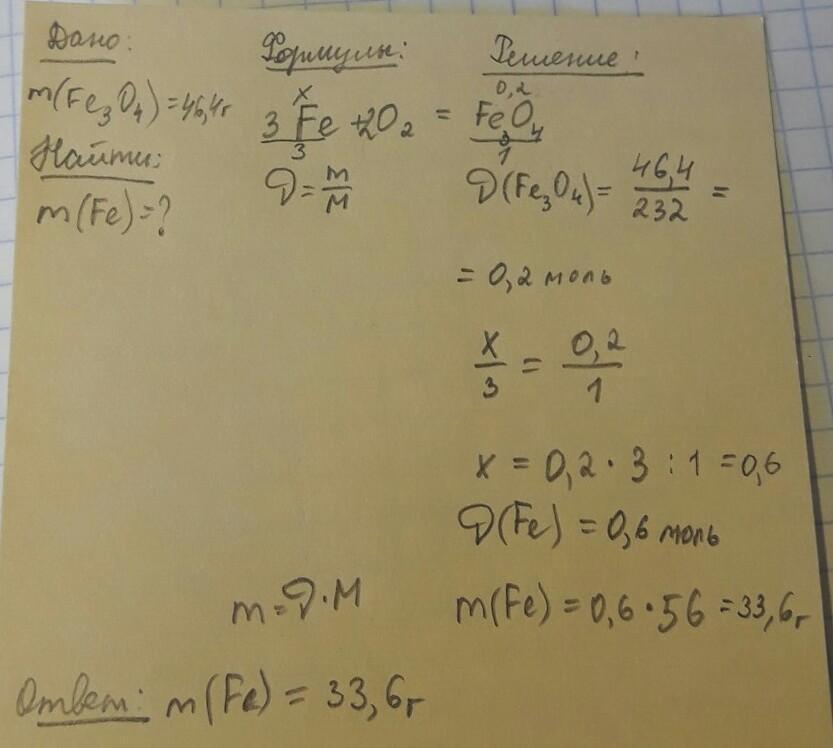 Дано:
m(Fe₃O₄)=46,4г
Найти:
m(Fe)=?
Формулы:
Решение:
x 0,2
3Fe + 2O₂ = Fe₃O₄
3 1
ν = m/M
ν(Fe₃O₄) = 46,4/232 =
= 0,2 моль
x/3 = 0,2/1
x = 0,2 · 3 : 1 = 0,6
ν(Fe) = 0,6 моль
m = ν·M
m(Fe) = 0,6 · 56 = 33,6г
Ответ: m(Fe) = 33,6г